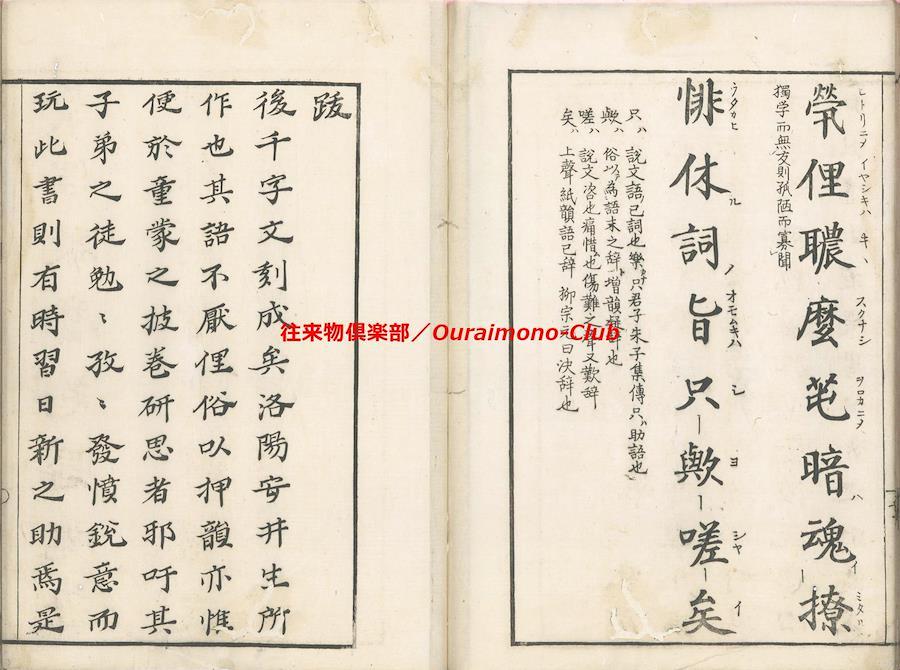 煢俚聽麼芚暗魂撩
ヒトリニヲ イヤシキハ キヽ スクナシ ヲロカニヲ ハ イ ミタリ
獨学而無友則孤陋而寡聞
悱休詞旨只歟嗟矣
ウタカヒ ル ノ オモムキハ シ ヨ シヤ イ
只ハ 説文語已詞也樂只君子朱子集傳只ハ助語也
歟ハ 俗以為語末之辞増韻疑辞也
嗟ハ 説文咨也痛惜也傷難之辞又歎辞
矣ハ 上聲紙韻語已辞 柳宗元曰决辞也
跋
後千字文刻成矣洛陽安井生所
作也其語不厭俚俗以押韻亦惟
便於童蒙之披卷研思者邪吁其
子弟之徒勉〻孜〻發憤鋭意而
玩此書則有時習日新之助焉是
往来物倶楽部／Ouraimono-Club